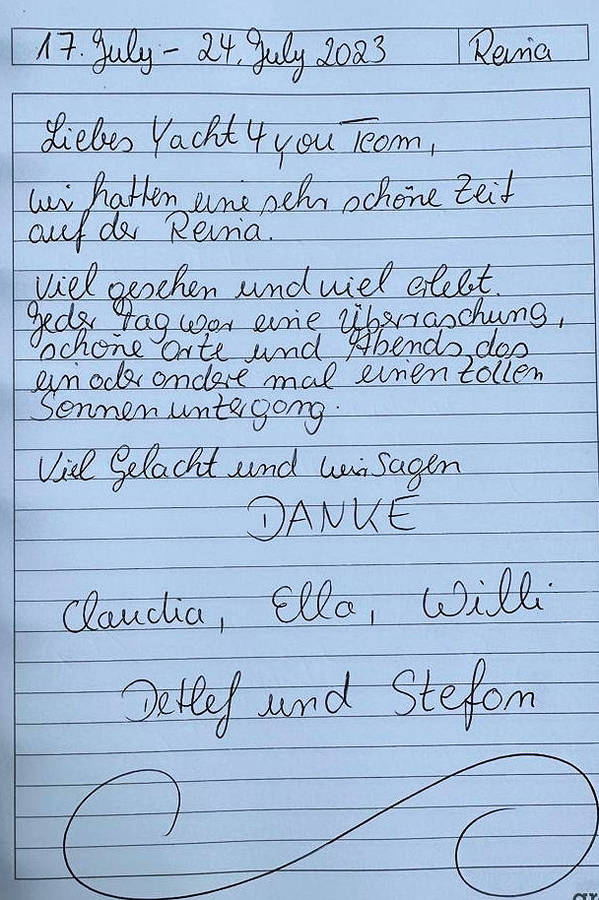 17. July - 24. July 2023 Reina
Liebes Yacht 4 you Team,
wir hatten eine sehr schöne Zeit
auf der Reina.
Viel gesehen und viel erlebt.
Jeder Tag war eine Überraschung,
schöne Orte und Abends das
ein oder andere mal einen tollen
Sonnenuntergang.
Viel Gelacht und wir sagen
DANKE
Claudia, Ella, Willi
Detlef und Stefan